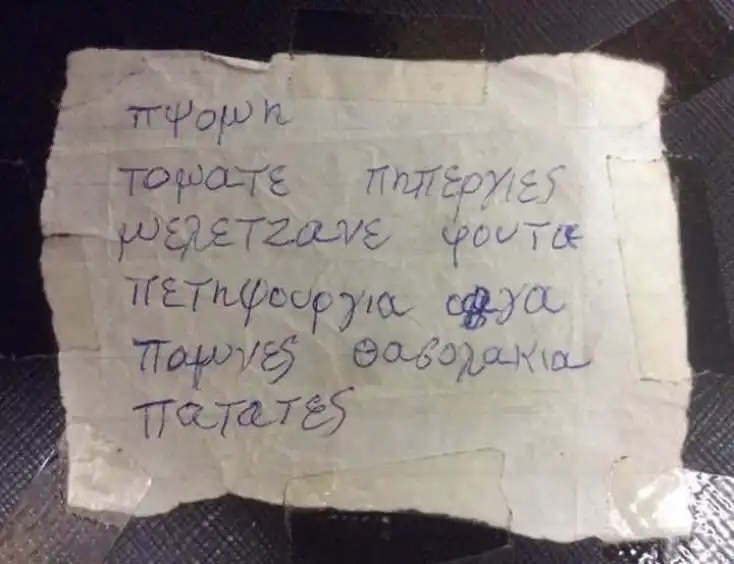 πψομη
τοματε πηπεργιες
μελετζανε φουτα
πετηφουργια αβγα
παμυνες θασολακια
πατατες